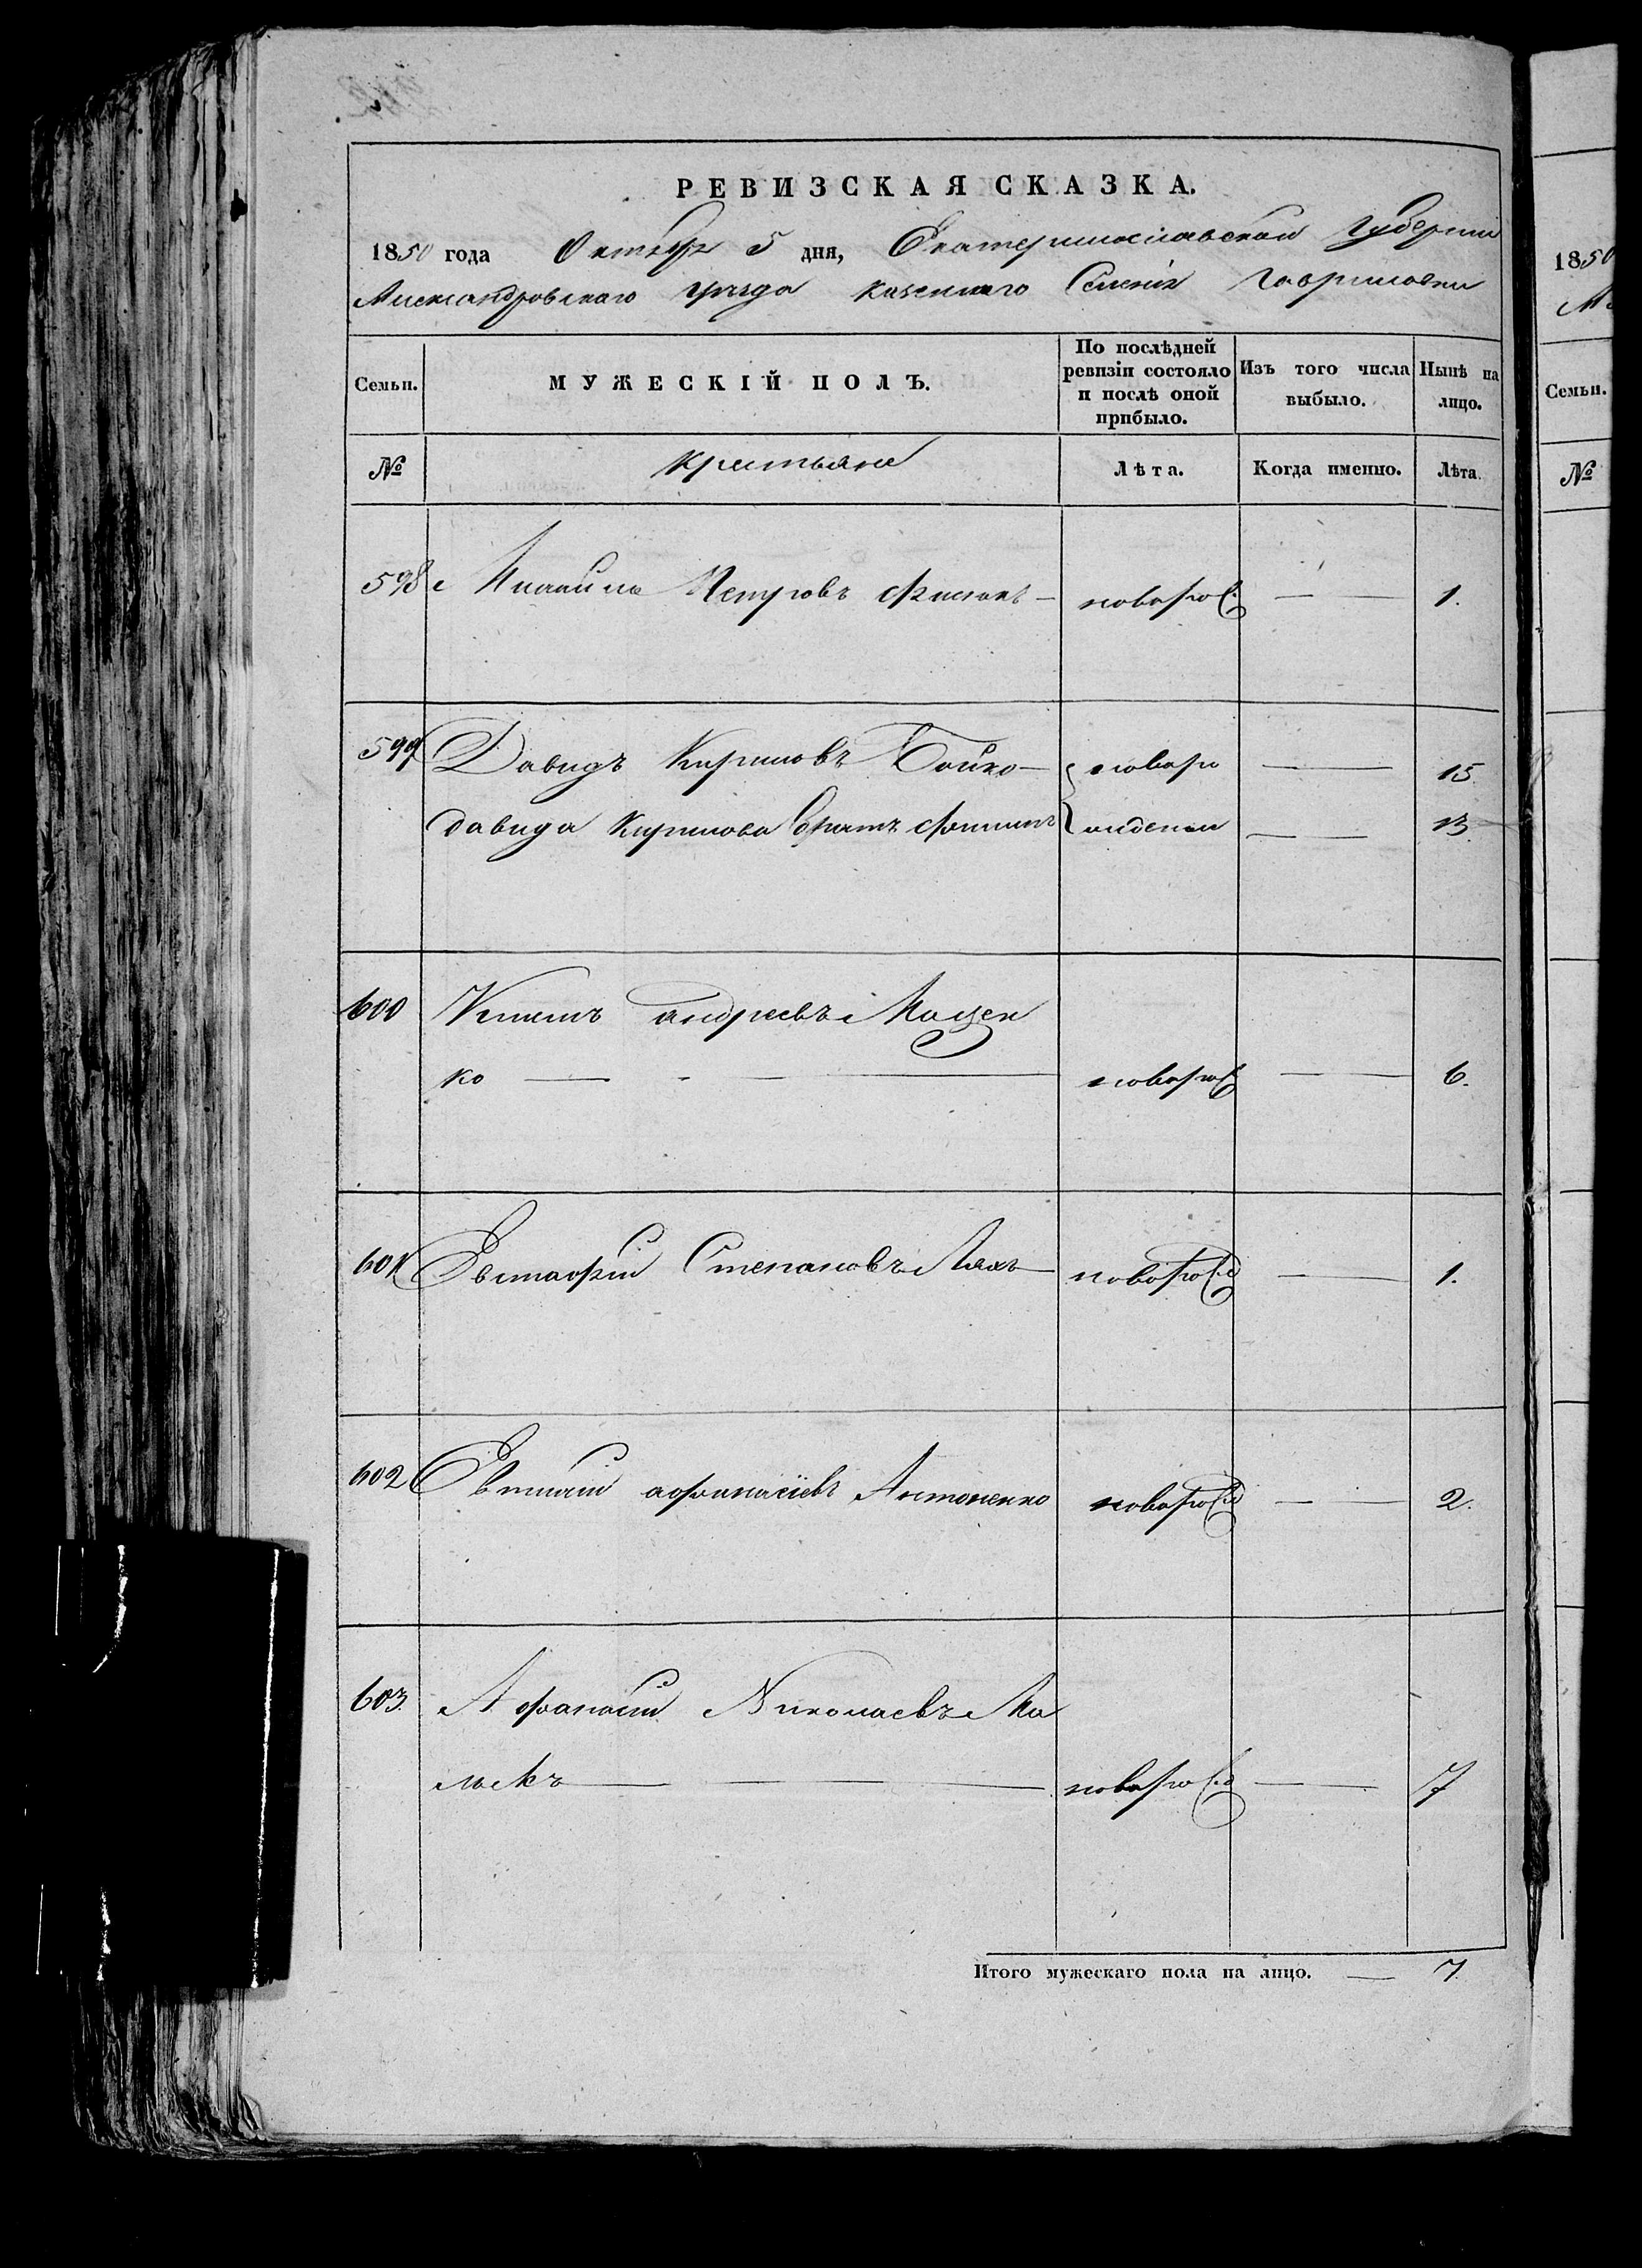 РЕВИЗСКАЯ СКАЗКА.
1850 года Октября 5 дня, Екатеринославской Губернии
Александровскаго уѣзда казеннаго Селенія Гавриловки
Семьи. МУЖЕСКІЙ ПОЛЪ. По послѣдней ревизіи состояло и послѣ оной прибыло. Изъ того числа выбыло. Нынѣ на лицо.
№ Крестьяне Лѣта. Когда именно. Лѣта.
598 Петровъ новорож — 1.
599 Давидъ Кириловъ Бойко — новоро — 15
Давида Кирилова братъ — 13.
600 Андреевъ Мацен
ко — новорож — 6.
601 Евстафій Степановъ Ляхъ — новорож — 1.
602 Афанасіевъ Антоненко новорож — 2.
603. Афанасій Николаевъ Ма
новорож — 7
Итого мужескаго пола на лицо. — 7.
1850
Семьи.
№